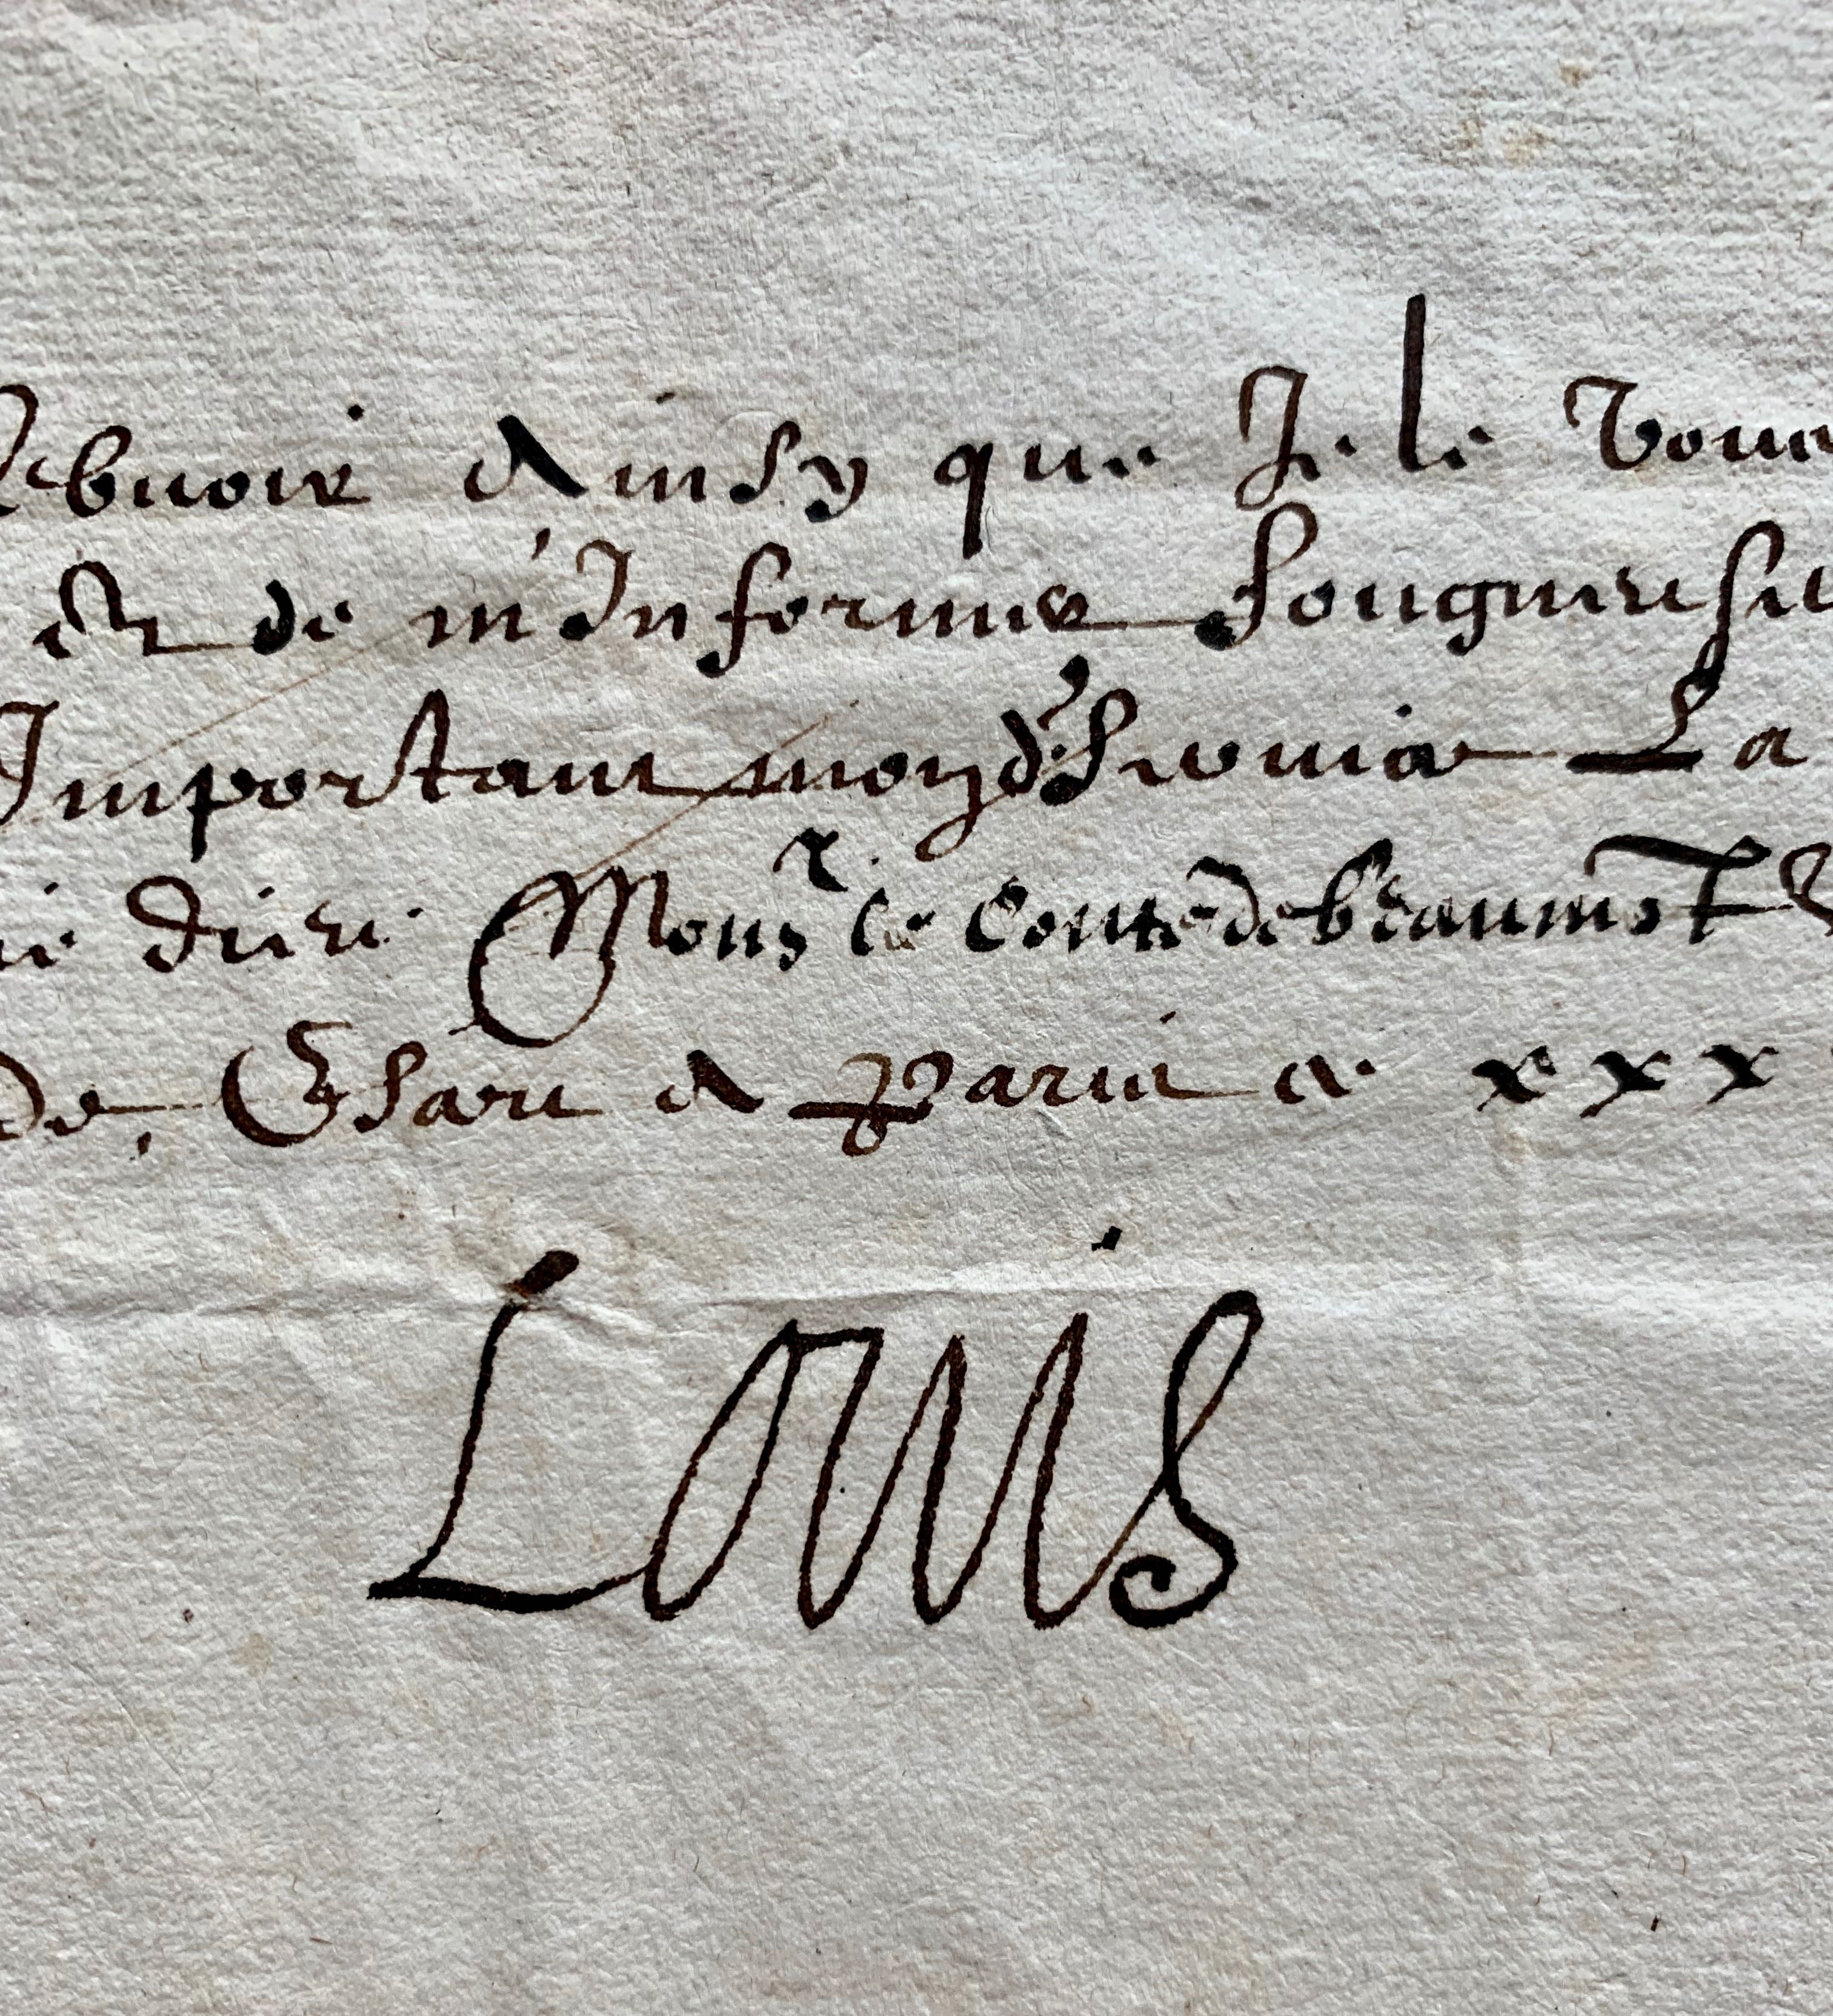 debuoir Ainsy que Je le vous
Et de m'Informer songneusem
Important mond. service La
ie dieu Mons.r le Conte de beaumōt
De, Escri A Paris ce xxx
Louis